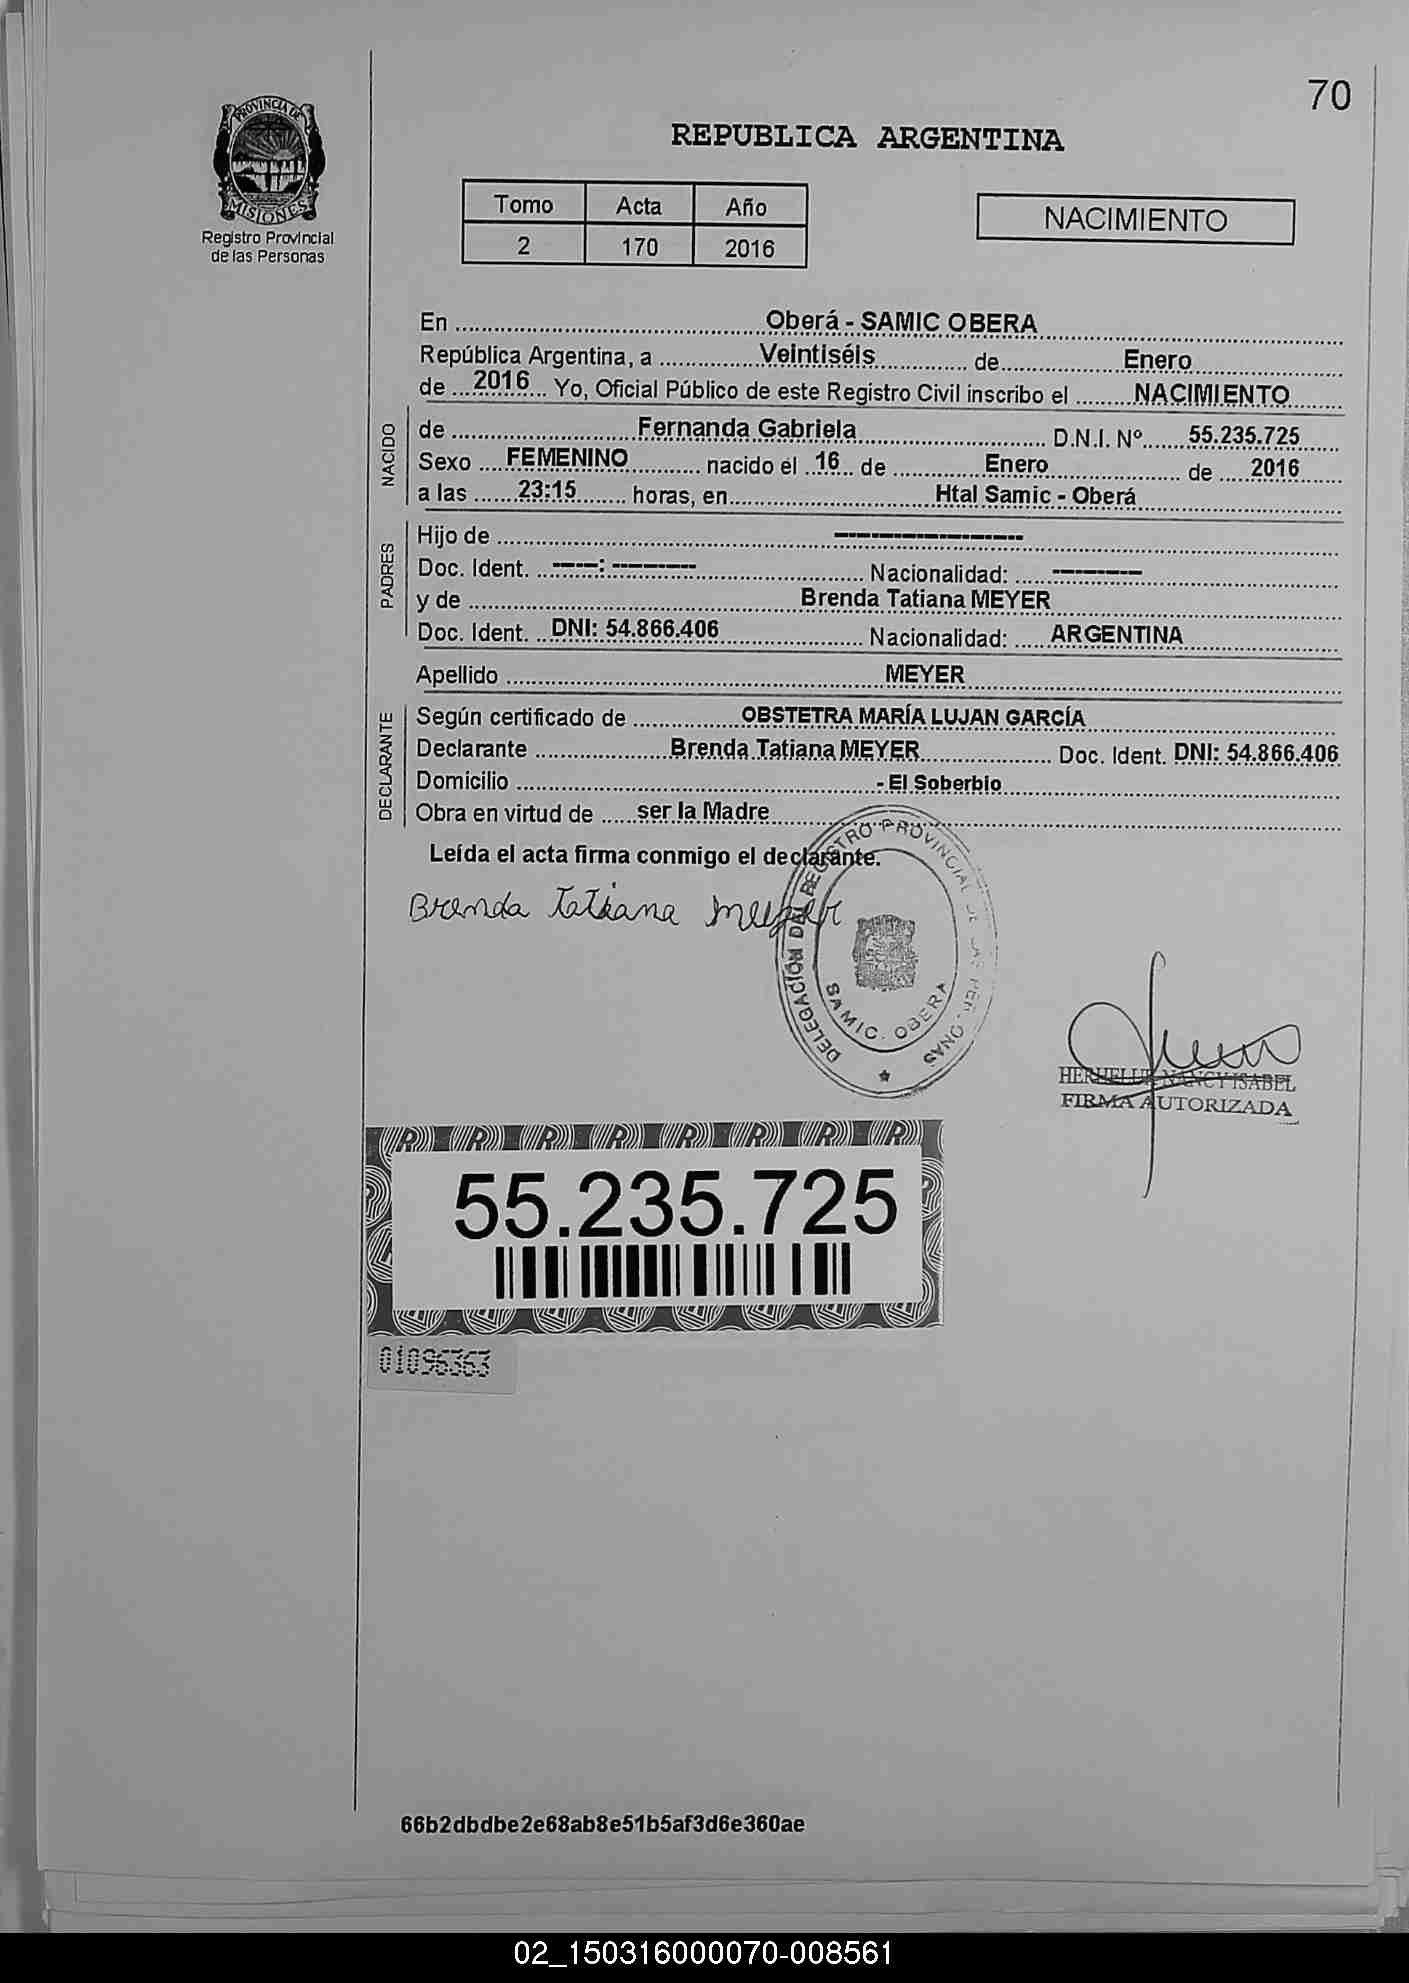 70
PROVINCIA DE
MISIONES
Registro Provincial
de las Personas
REPUBLICA ARGENTINA
Tomo Acta Año
2 170 2016
NACIMIENTO
En ........ Oberá - SAMIC OBERA ........
República Argentina, a ........ Veintiséis ........ de ........ Enero ........
de ... 2016 ... Yo, Oficial Público de este Registro Civil inscribo el ........ NACIMIENTO ........
NACIDO
de ........ Fernanda Gabriela ........ D.N.I. Nº ...... 55.235.725 ......
Sexo .... FEMENINO ........ nacido el .. 16 .. de ........ Enero ........ de ..... 2016 ......
a las ...... 23:15 ....... horas, en ........ Htal Samic - Oberá ........
PADRES
Hijo de ........ -------------------- ........
Doc. Ident. .. -----: --------- ........ Nacionalidad: ..... ---------- ........
y de ........ Brenda Tatiana MEYER ........
Doc. Ident. .. DNI: 54.866.406 ........ Nacionalidad: ..... ARGENTINA ........
Apellido ........ MEYER ........
DECLARANTE
Según certificado de ........ OBSTETRA MARÍA LUJAN GARCÍA ........
Declarante ........ Brenda Tatiana MEYER ........ Doc. Ident. DNI: 54.866.406
Domicilio ........ - El Soberbio ........
Obra en virtud de ..... ser la Madre ........
Leída el acta firma conmigo el declarante.
Brenda Tatiana Meyer
DELEGACIÓN DEL REGISTRO PROVINCIAL DE LAS PERSONAS
SAMIC. OBERA
NANCY ISABEL
FIRMA AUTORIZADA
55.235.725
01096363
66b2dbdbe2e68ab8e51b5af3d6e360ae
02_150316000070-008561